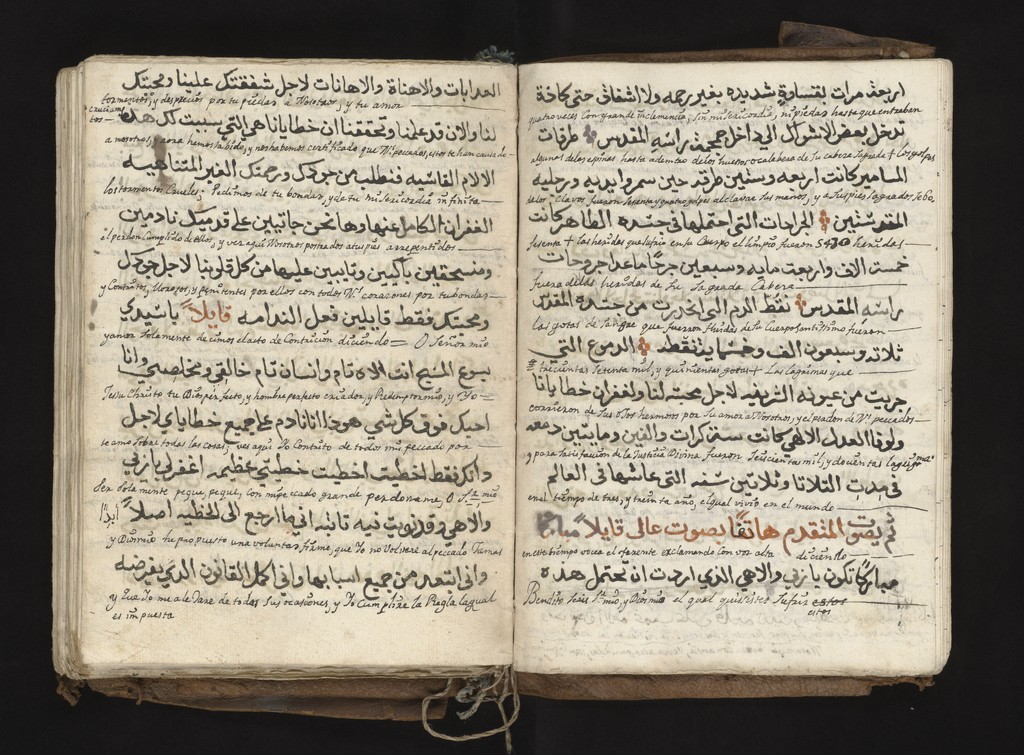 اربعة مرات لقساوة شديده بغير رحمه ولا اشفاق حتي كافة
quatro veces con grande inclemencia, sin misericordia, ni piedas hasta que entraban
تدخل بعض الاشواك الي داخل جمجمة راسه المقدس طرقات
algunas de las espinas hasta adentro de los huesos o calabera de Su cabeza Sagrada + Los golpes
المسامير كانت اربعه وستين طرقه حين سمروا يديه ورجليه
de los Clavos fueron Sesenta y quatro golpes al clavar Sus manos, y a Sus pies Sagrados
المقدستين الجراحات التي احتملها في جسده الطاهر كانت
Sesenta + Las heridas que Sufrio en su Cuerpo el limpio fueron 5470 heridas
خمست الاف واربعت مايه وسبعين جرحًا ماعدا جروحات
fuera de las heridas de Su Sagrada Cabeza
راسه المقدس نقط الدم التي انحدرت من جسده المقدس
Las gotas de Sangre que fueron fluidas de Su Cuerpo Santissimo fueron
ثلاثه وسبعون الف وخمسمايه نقطه الدموع التي
trecientas Setenta mil, y quinientas gotas + Las lagrimas que
جريت من عيونه الشريفه لاجل محبته لنا ولغفران خطايانا
corrieron de Sus Ojos hermosos por Su amor a Nosotros, y el perdon de Ns. peccados
ولوفا العدل الالهي كانت ستة كرات والفين ومايتين دمعه
y para Satisfacion de la Justicia Divina fueron Seiscientas mil, y docientas lagrimas
في مدت الثلاثا وثلاثين سنه التي عاشها في العالم
en el tiempo de tres, y treinta años, el qual vivio en el mundo
ثم يصوت المتقدم هاتفًا بصوت عالي قايلاً
en este tiempo vocea el oferente exclamando con voz alta diciendo
مباركًا تكون يا ربي والاهي الذي اردت ان تحتمل هذه
Bendito Seais Sr. mio, y Dios mio el qual quisistes Sufrir estos
estos
العذابات والاهنة والاهانات لاجل شفقتك علينا ومحبتك
tormentos, y desprecios por tu piedas à Nosotros, y tu amor
لنا والان قد علمنا وتحققنا ان خطايانا هي التي سببت لك هذه
a nosotros, y aora hemos sabido, y nos habemos certificado que Ns. peccados, estos te han causado
الالام القاسيه فنطلب من جودك ورحمتك الغير المتناهيه
los tormentos Crueles; Pedimos de tu bondad, y de tu misericordia infinita
الغفران الكامل عنها وها نحن جاتيين على قدميك نادمين
el perdon Cumplido de ellos, y ves aqui Nosotros postrados a tus pies arrepentidos
ومنسحقين باكيين وتايبين عليها من كل قلوبنا لاجل جودك
y Contritos, llorosos, y penitentes por ellos con todos Ns. corazones por tu bondad
ومحبتك فقط قايلين فعل الندامه قايلاً يا سيدي
y amor Solamente decimos el acto de Contricion diciendo = O Señor mio
يسوع المسيح انت الاه تام وانسان تام خالقي ومخلصي وانا
Jesu Christo tu Dios perfecto, y hombre perfecto criador, y Redemptor mio, y Yo
احبك فوق كل شي هوذا انا نادم على جميع خطاياي لاجل
te amo Sobre todas las cosas; ves aqui Yo Contrito de todos mis peccado por
وانك فقط اخطيت اخطيت خطيتي عظيمه اغفر لي يا ربي
Ser Solamente pequé, pequé, con mi peccado grande perdoname, O Sr. mio
والاهي وقد نويت نيه تابته اني ما ارجع الى الخطيه اصلاً ابدًا
y Dios mio tu propuesto una voluntad firme, que Yo no volvere al peccado Jamas
واني ابتعد من جميع اسبابها واني اكمل القانون الذي يفرضه
y que Yo me aledare de todas Sus ocasiones, y Yo Cumplire la Regla la qual
es impuesta